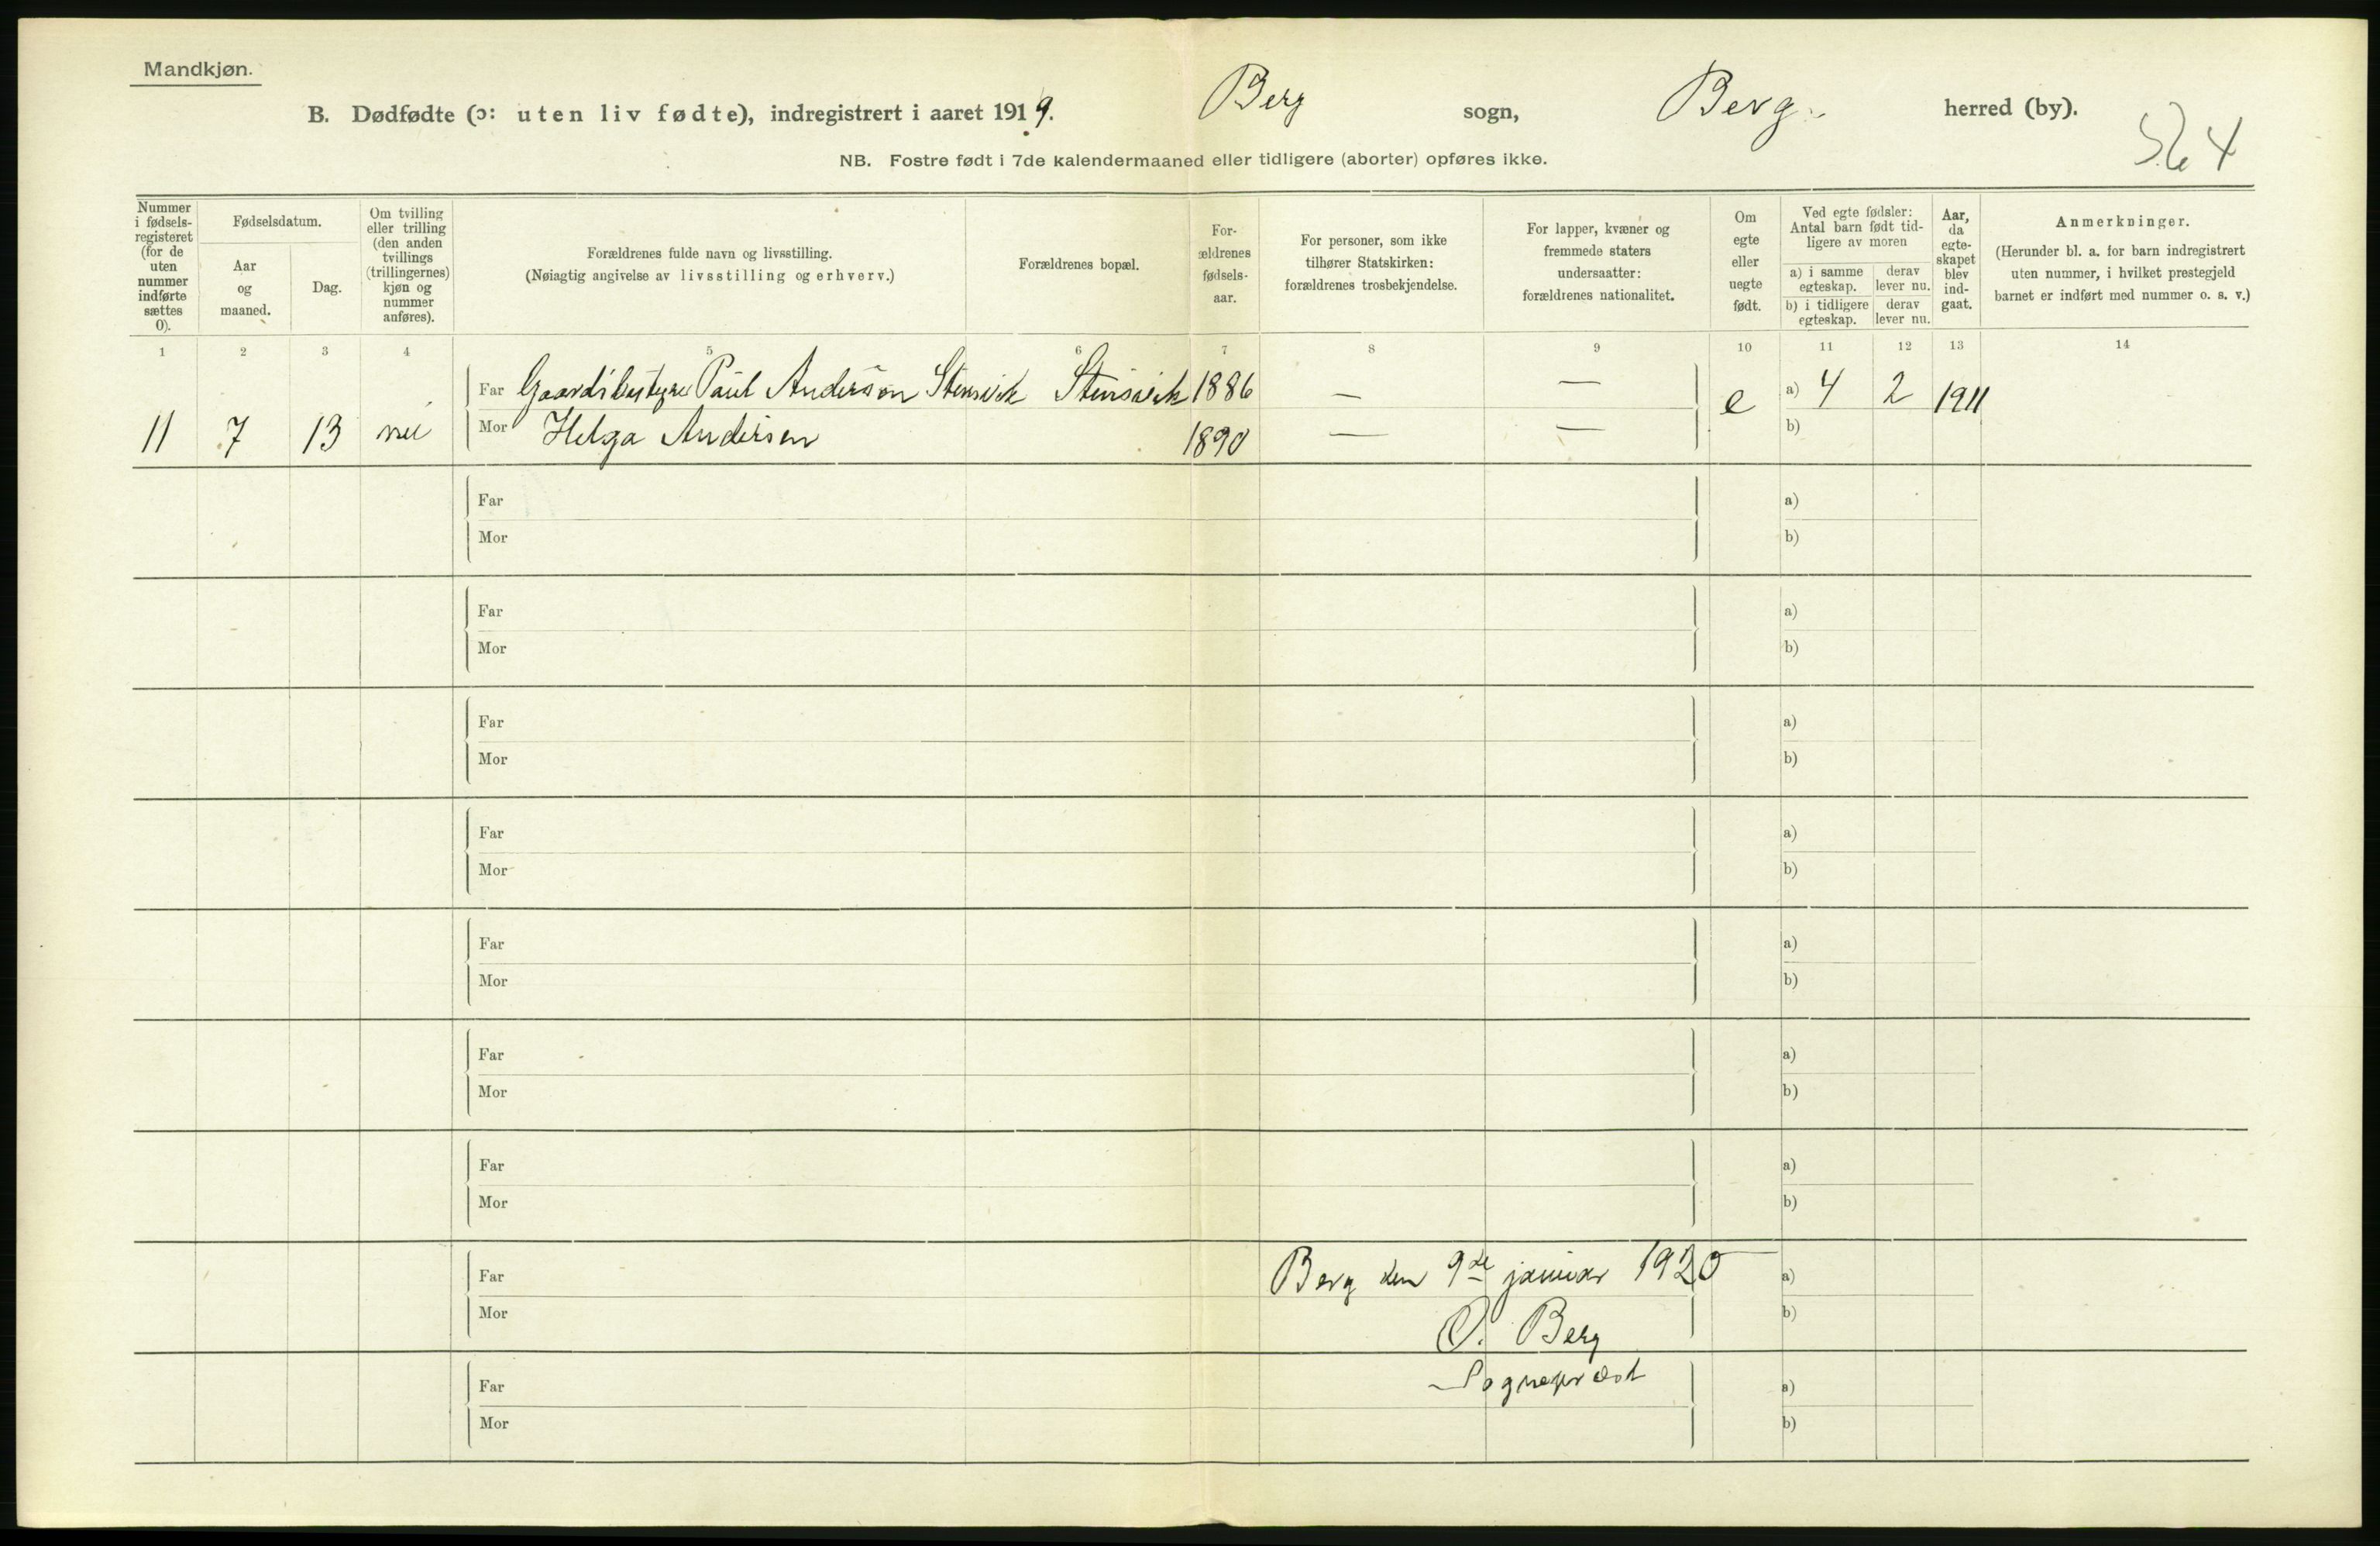 Mandkjøn.
B. Dødfødte (ɔ: uten liv fødte), indregistrert i aaret 1919. Berg sogn, Berg herred (by).
NB. Fostre født i 7de kalendermaaned eller tidligere (aborter) opføres ikke.
Nummer i fødsels-registeret (for de uten nummer indførte sættes 0).
Fødselsdatum.
Aar og maaned.
Dag.
Om tvilling eller trilling (den anden tvillings (trillingernes) kjøn og nummer anføres).
Forældrenes fulde navn og livsstilling.
(Nøiagtig angivelse av livsstilling og erhverv.)
Forældrenes bopæl.
For-ældrenes fødsels-aar.
For personer, som ikke tilhører Statskirken: forældrenes trosbekjendelse.
For lapper, kvæner og fremmede staters undersaatter: forældrenes nationalitet.
Om egte eller uegte født.
Ved egte fødsler: Antal barn født tid-ligere av moren
a) i samme egteskap.
derav lever nu.
b) i tidligere egteskap.
derav lever nu.
Aar, da egte-skapet blev ind-gaat.
Anmerkninger.
(Herunder bl. a. for barn indregistrert uten nummer, i hvilket prestegjeld barnet er indført med nummer o. s. v.)
1 2 3 4 5 6 7 8 9 10 11 12 13 14
Far Gaardsbestyrer Paul Anderson Stensvik Stensvik 1886 — — e a) 4 2 1911
11 7 13 nei Mor Helga Andersen 1890 — — b)
Far a)
Mor b)
Far a)
Mor b)
Far a)
Mor b)
Far a)
Mor b)
Far a)
Mor b)
Far a)
Mor b)
Far a)
Mor b)
Far Berg den 9de januar 1920 a)
Mor O. Berg b)
Far Sogneprest a)
Mor b)